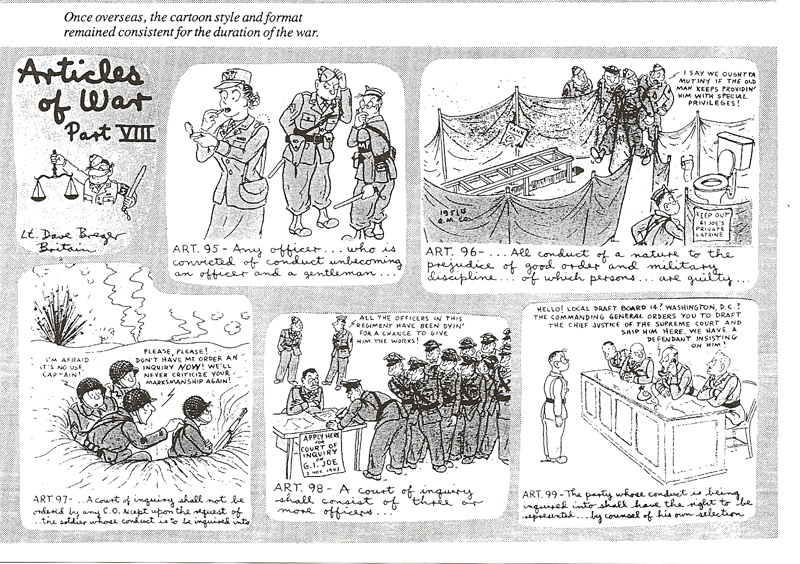 Once overseas, the cartoon style and format
remained consistent for the duration of the war.
Articles
of War
Part VIII
Lt. Dave Breger
Britain
ART. 95 - Any officer... who is
convicted of conduct unbecoming
an officer and a gentleman...
I SAY WE OUGHTTA
MUTINY IF THE OLD
MAN KEEPS PROVIDIN'
HIM WITH SPECIAL
PRIVILEGES!
KEEP OUT
GI JOE'S
PRIVATE
LATRINE
ART. 96 - ... All conduct of a nature to the
prejudice of good order and military
discipline... of which persons... are guilty...
I'M AFRAID
IT'S NO USE,
CAP'TAIN!
PLEASE, PLEASE!
DON'T HAVE ME ORDER AN
INQUIRY NOW! WE'LL
NEVER CRITICIZE YOUR
MARKSMANSHIP AGAIN!
ART. 97 - ..A court of inquiry shall not be
ordered by any C.O. except upon the request of
..the soldier whose conduct is to be inquired into
ALL THE OFFICERS IN THIS
REGIMENT HAVE BEEN DYIN'
FOR A CHANCE TO GIVE
HIM THE WORKS!
APPLY HERE
FOR
COURT OF
INQUIRY
ON
G.I. JOE
2 NOV. 1943
ART. 98 - A court of inquiry
shall consist of three or
more officers...
HELLO! LOCAL DRAFT BOARD 14? WASHINGTON, D.C.?
THE COMMANDING GENERAL ORDERS YOU TO DRAFT
THE CHIEF JUSTICE OF THE SUPREME COURT AND
SHIP HIM HERE. WE HAVE A
DEFENDANT INSISTING
ON HIM!
ART. 99 - The party whose conduct is being
inquired into shall have the right to be
represented... by counsel of his own selection